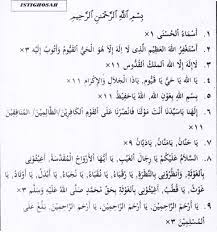 ISTIGHOSAH
بِسْمِ اللَّهِ الرَّحْمٰنِ الرَّحِيْمِ
١. أَسْمَاءُ الْحُسْنَى ×١
٢. أَسْتَغْفِرُ اللهَ الْعَظِيْمَ الَّذِي لَا إِلَهَ إِلَّا هُوَ الْحَيُّ الْقَيُّوْمُ وَأَتُوْبُ إِلَيْهِ ×٣
٣. لَا إِلَهَ إِلَّا اللهُ الْمَلِكُ الْقُدُّوْسُ ×١١
٤. يَا اللهُ يَا حَيُّ يَا قَيُّوْمُ، يَاذَا الْجَلَالِ وَالْإِكْرَامِ ×١١
٥. بِسْمِ اللهِ بِعَوْنِ اللهِ، يَا اللهُ يَاحَفِيْظُ ×١١
٦. إِلَهَنَا يَاسَيِّدَنَا أَنْتَ مَوْلَانَا فَانْصُرْنَا عَلَى الْقَوْمِ الْكَافِرِيْنَ/الظَّالِمِيْنَ/الْمُنَافِقِيْنَ
×١١
٧. يَا حَنَّانُ، يَامَنَّانُ، يَادَيَّانُ ×٩
٨. السَّلَامُ عَلَيْكُمْ يَا رِجَالَ الْغَيْبِ، يَا أَيُّهَا الْأَرْوَاحُ الْمُقَدَّسَةُ، أَغِيْثُوْنِي
بِالْغَوْثَةِ وَانْظُرُوْنِي بِالنَّظْرَةِ، يَا رُقَبَاءُ، يَا نُقَبَاءُ، يَا نُجَبَاءُ، يَا بُدَلَاءُ، يَا أَوْتَادُ، يَا
غَوْثُ، يَا قُطْبُ، أَغِيْثُوْنِي بِالْغَوْثَةِ بِحَقِّ مُحَمَّدٍ صَلَّى اللهُ عَلَيْهِ وَسَلَّمَ ×٣
٩. يَا أَرْحَمَ الرَّاحِمِيْنَ، يَا أَرْحَمَ الرَّاحِمِيْنَ، يَا أَرْحَمَ الرَّاحِمِيْنَ، فَرِّجْ عَلَى
الْمُسْلِمِيْنَ ×٣